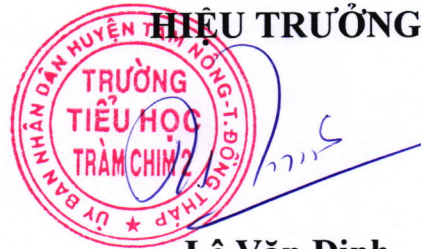 HIỆU TRƯỞNG
ỦY BAN NHÂN DÂN HUYỆN TAM NÔNG-T.ĐỒNG THÁP
TRƯỜNG
TIỂU HỌC
TRÀM CHIM 2
Lê Văn Định